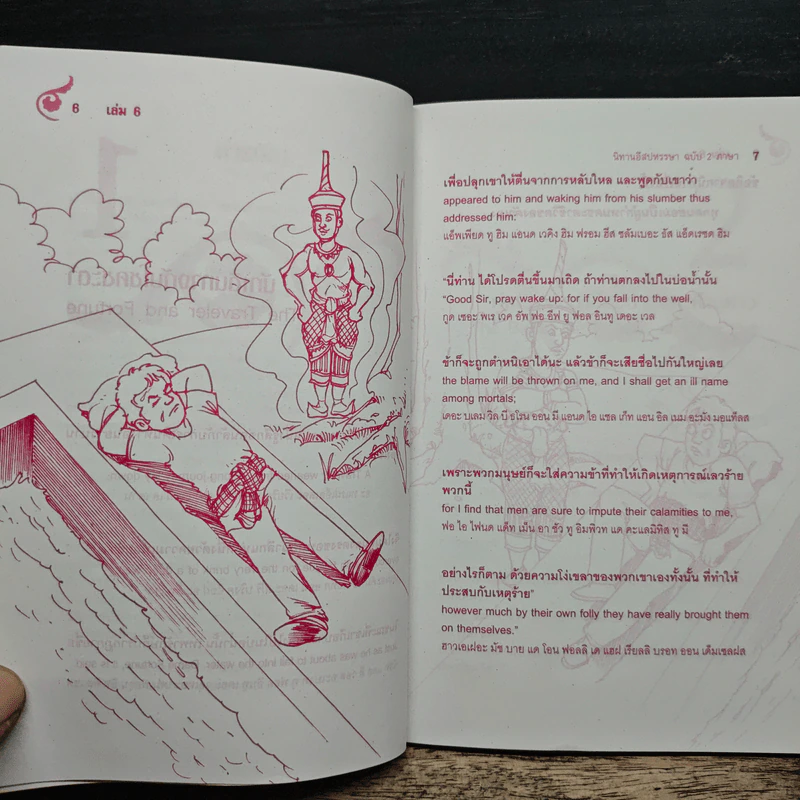 6 เล่ม 6
นิทานอีสปหรรษา ฉบับ 2 ภาษา 7
เพื่อปลุกเขาให้ตื่นจากการหลับใหล และพูดกับเขาว่า
appeared to him and waking him from his slumber thus
addressed him:
แอ็พเพียด ทู ฮิม แอนด เวคิง ฮิม ฟรอม ฮีส ซลัมเบอะ ธัส แอ็ดเรซด ฮิม
"นี่ท่าน ได้โปรดตื่นขึ้นมาเถิด ถ้าท่านตกลงไปในบ่อน้ำนั้น
"Good Sir, pray wake up: for if you fall into the well,
กูด เซอะ พเร เวค อัพ ฟอ อีฟ ยู ฟอล อินทู เดอะ เวล
ข้าก็จะถูกตำหนิเอาได้นะ แล้วข้าก็จะเสียชื่อไปกันใหญ่เลย
the blame will be thrown on me, and I shall get an ill name
among mortals;
เดอะ บเลม วิล บี ธโรน ออน มี แอนด ไอ แชล เก็ท แอน อิล เนม อะมัง มอแท็ลส
เพราะพวกมนุษย์ก็จะใส่ความข้าที่ทำให้เกิดเหตุการณ์เลวร้าย
พวกนี้
for I find that men are sure to impute their calamities to me,
ฟอ ไอ ไฟนด แด็ท เม็น อา ชัว ทู อิมพิวท แด คะแลมิทิส ทู มี
อย่างไรก็ตาม ด้วยความโง่เขลาของพวกเขาเองทั้งนั้น ที่ทำให้
ประสบกับเหตุร้าย"
however much by their own folly they have really brought them
on themselves."
ฮาวเอเฝอะ มัช บาย แด โอน ฟอลลิ เด แฮฝ เรียลลิ บรอท ออน เด็มเซลฝส